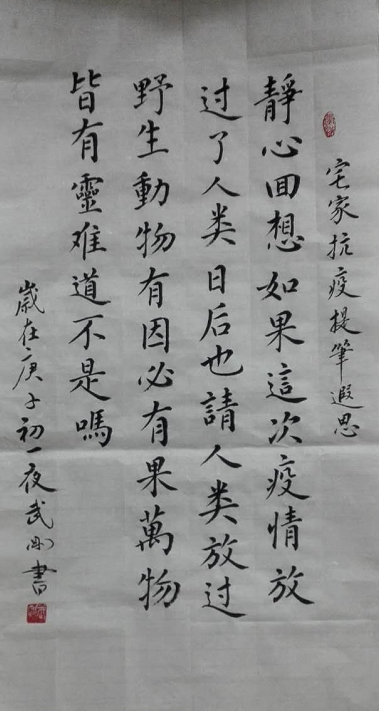 宅家抗疫提筆遐思
靜心回想如果這次疫情放
过了人类日后也請人类放过
野生動物有因必有果萬物
皆有靈难道不是嗎
歲在庚子初一夜武刚書